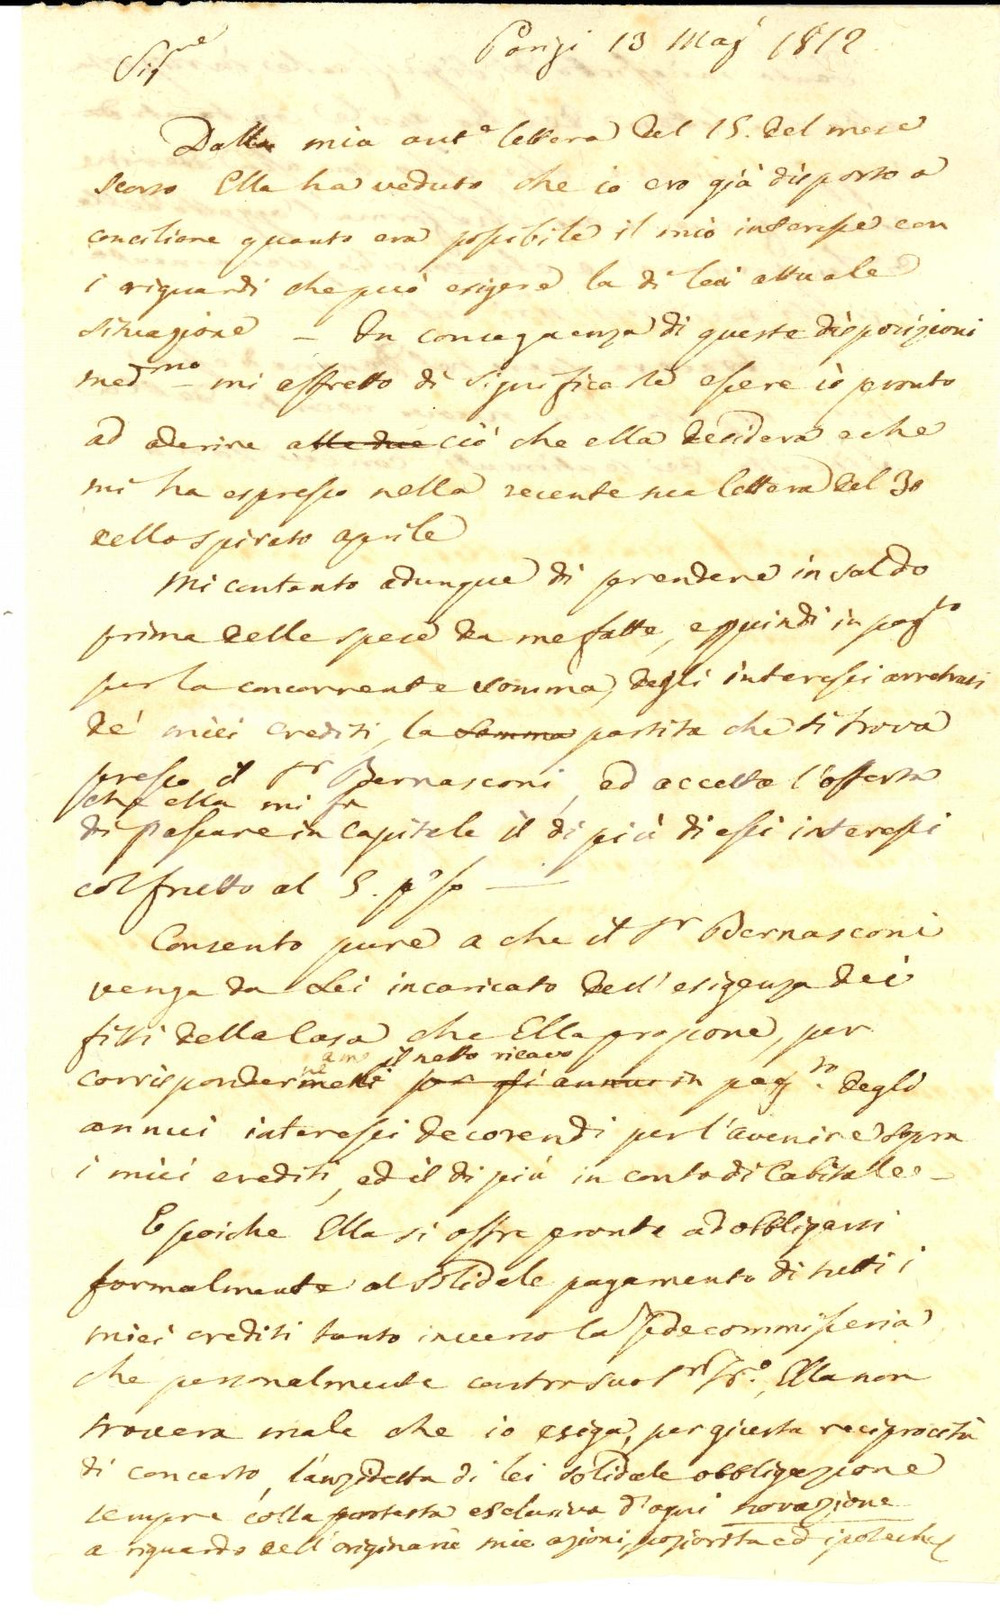 Parigi 13 Mag° 1812
Sig.re
Dalla mia ant.e lettera del 15. del mese
scorso Ella ha veduto che io ero già disposto a
conciliare quanto era possibile il mio interesse con
i riguardi che può esigere la di lei attuale
situazione – In conseguenza di queste disposizioni
med.me – mi affretto di significarle essere io pronto
ad aderire alle due ciò che ella desidera e che
mi ha espresso nella recente sua lettera del 30
dello spirato aprile
Mi contento adunque di prendere in saldo
prima delle spese da me fatte, e quindi in pag.to
per la concorrente somma, degli interessi arretrati
de' miei crediti, la somma partita che si trova
presso il Sr Bernasconi, ed accetto l'offerta
che ella mi fa
di passare in Capitale il di più di essi interessi
col frutto al 5. p% —
Consento pure a che il Sr Bernasconi
venga da Lei incaricato dell'esigenza dei
fitti della Casa che Ella propone, per
il netto ricavo
corrispondermeli per gli annui in pag.to degli
annui interessi decorendi per l'avenire sopra
i miei crediti, ed il di più in conto di Capitale –
E poiche Ella si offre pronta ad obbligarsi
formalmente al solidale pagamento di tutti i
miei crediti tanto inverso la fidecommisseria
che personalmente contro suo Sr , Ella non
trovera male che io esiga, per giusta reciprocità
di concerto, l'anzidetta di lei solidale obbligazione
sempre colla protesta esclusiva d'ogni novazione
a riguardo dell'originarie mie azioni, poziorità ed ipoteche